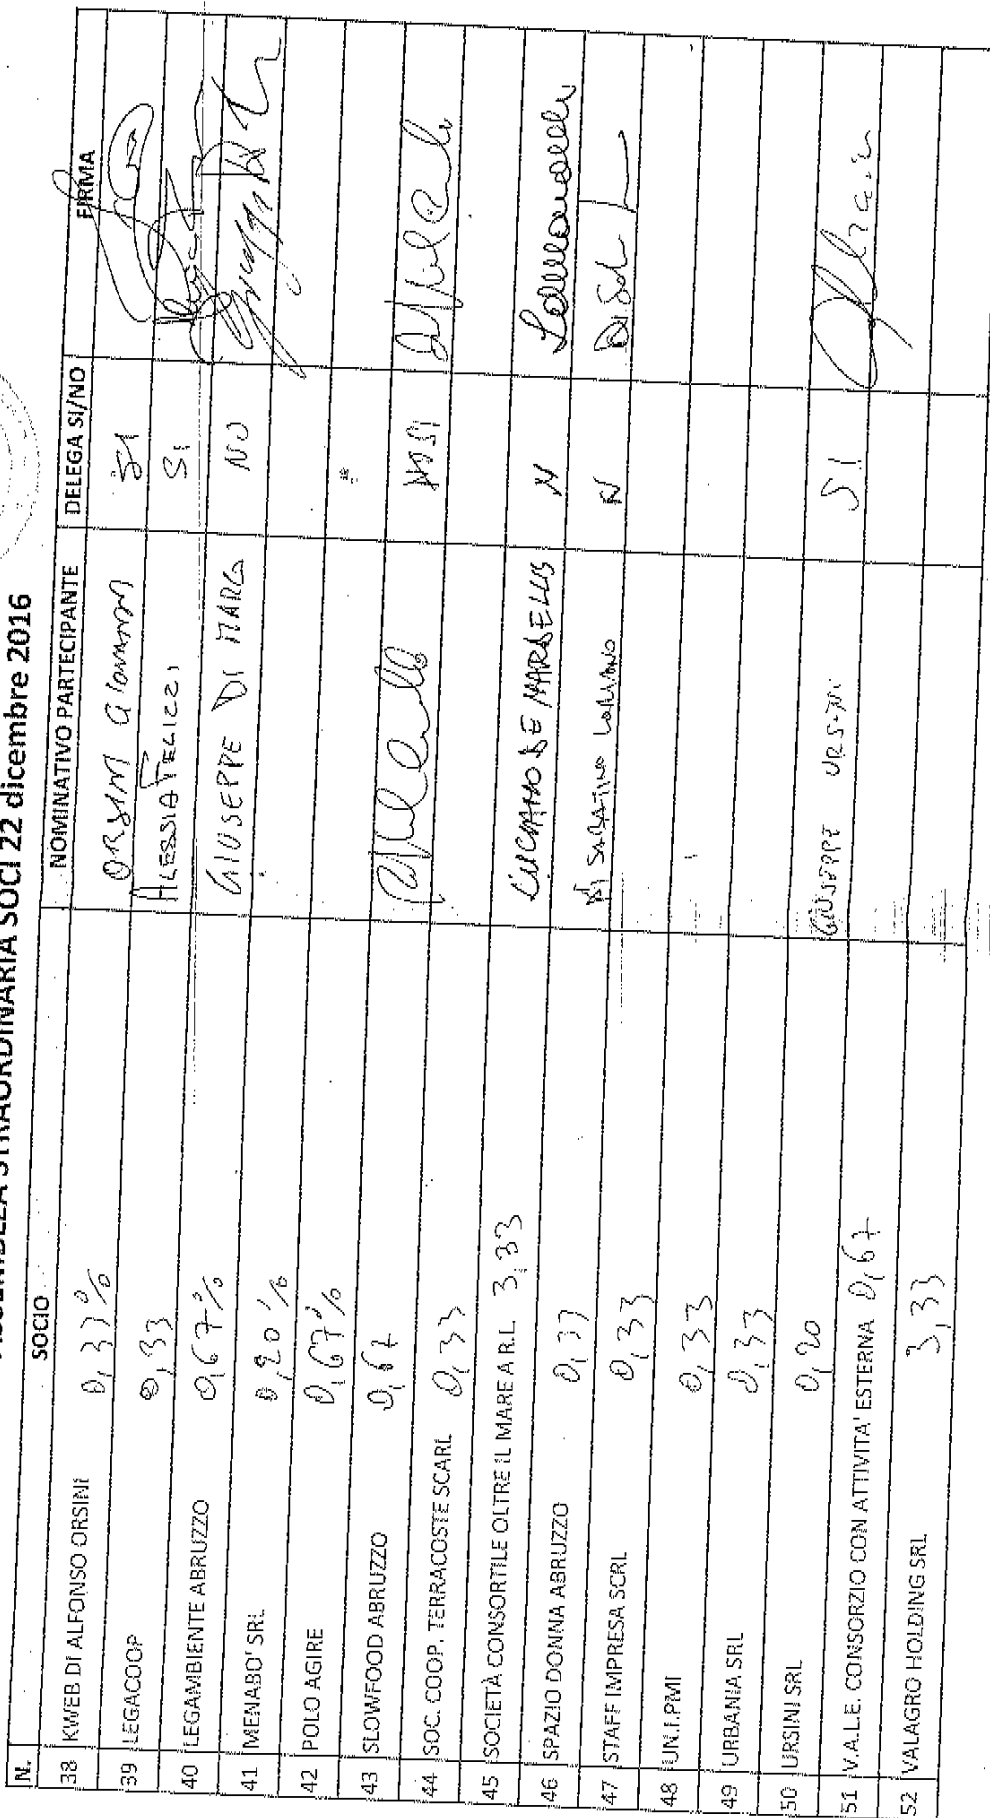 ASSEMBLEA STRAORDINARIA SOCI 22 dicembre 2016
N. SOCIO NOMINATIVO PARTECIPANTE DELEGA SI/NO FIRMA
38 KWEB DI ALFONSO ORSINI 0,33% ORSINI GIOVANNI SI
39 LEGACOOP 0,33 ALESSIA FELIZZI SI
40 LEGAMBIENTE ABRUZZO 0,67% GIUSEPPE DI MARCO NO
41 MENABO' SRL 0,20%
42 POLO AGIRE 0,67%
43 SLOWFOOD ABRUZZO 0,67 SI
44 SOC. COOP. TERRACOSTE SCARL 0,33
45 SOCIETÀ CONSORTILE OLTRE IL MARE A R.L. 3,33 LUCIANO DE N
46 SPAZIO DONNA ABRUZZO 0,33 DI SABATINO N
47 STAFF IMPRESA SCRL 0,33
48 UN.I.PMI 0,33
49 URBANIA SRL 0,33
50 URSINI SRL 0,20 GIUSEPPE URSINI SI
51 V.A.L.E. CONSORZIO CON ATTIVITA' ESTERNA 0,67
52 VALAGRO HOLDING SRL 3,33